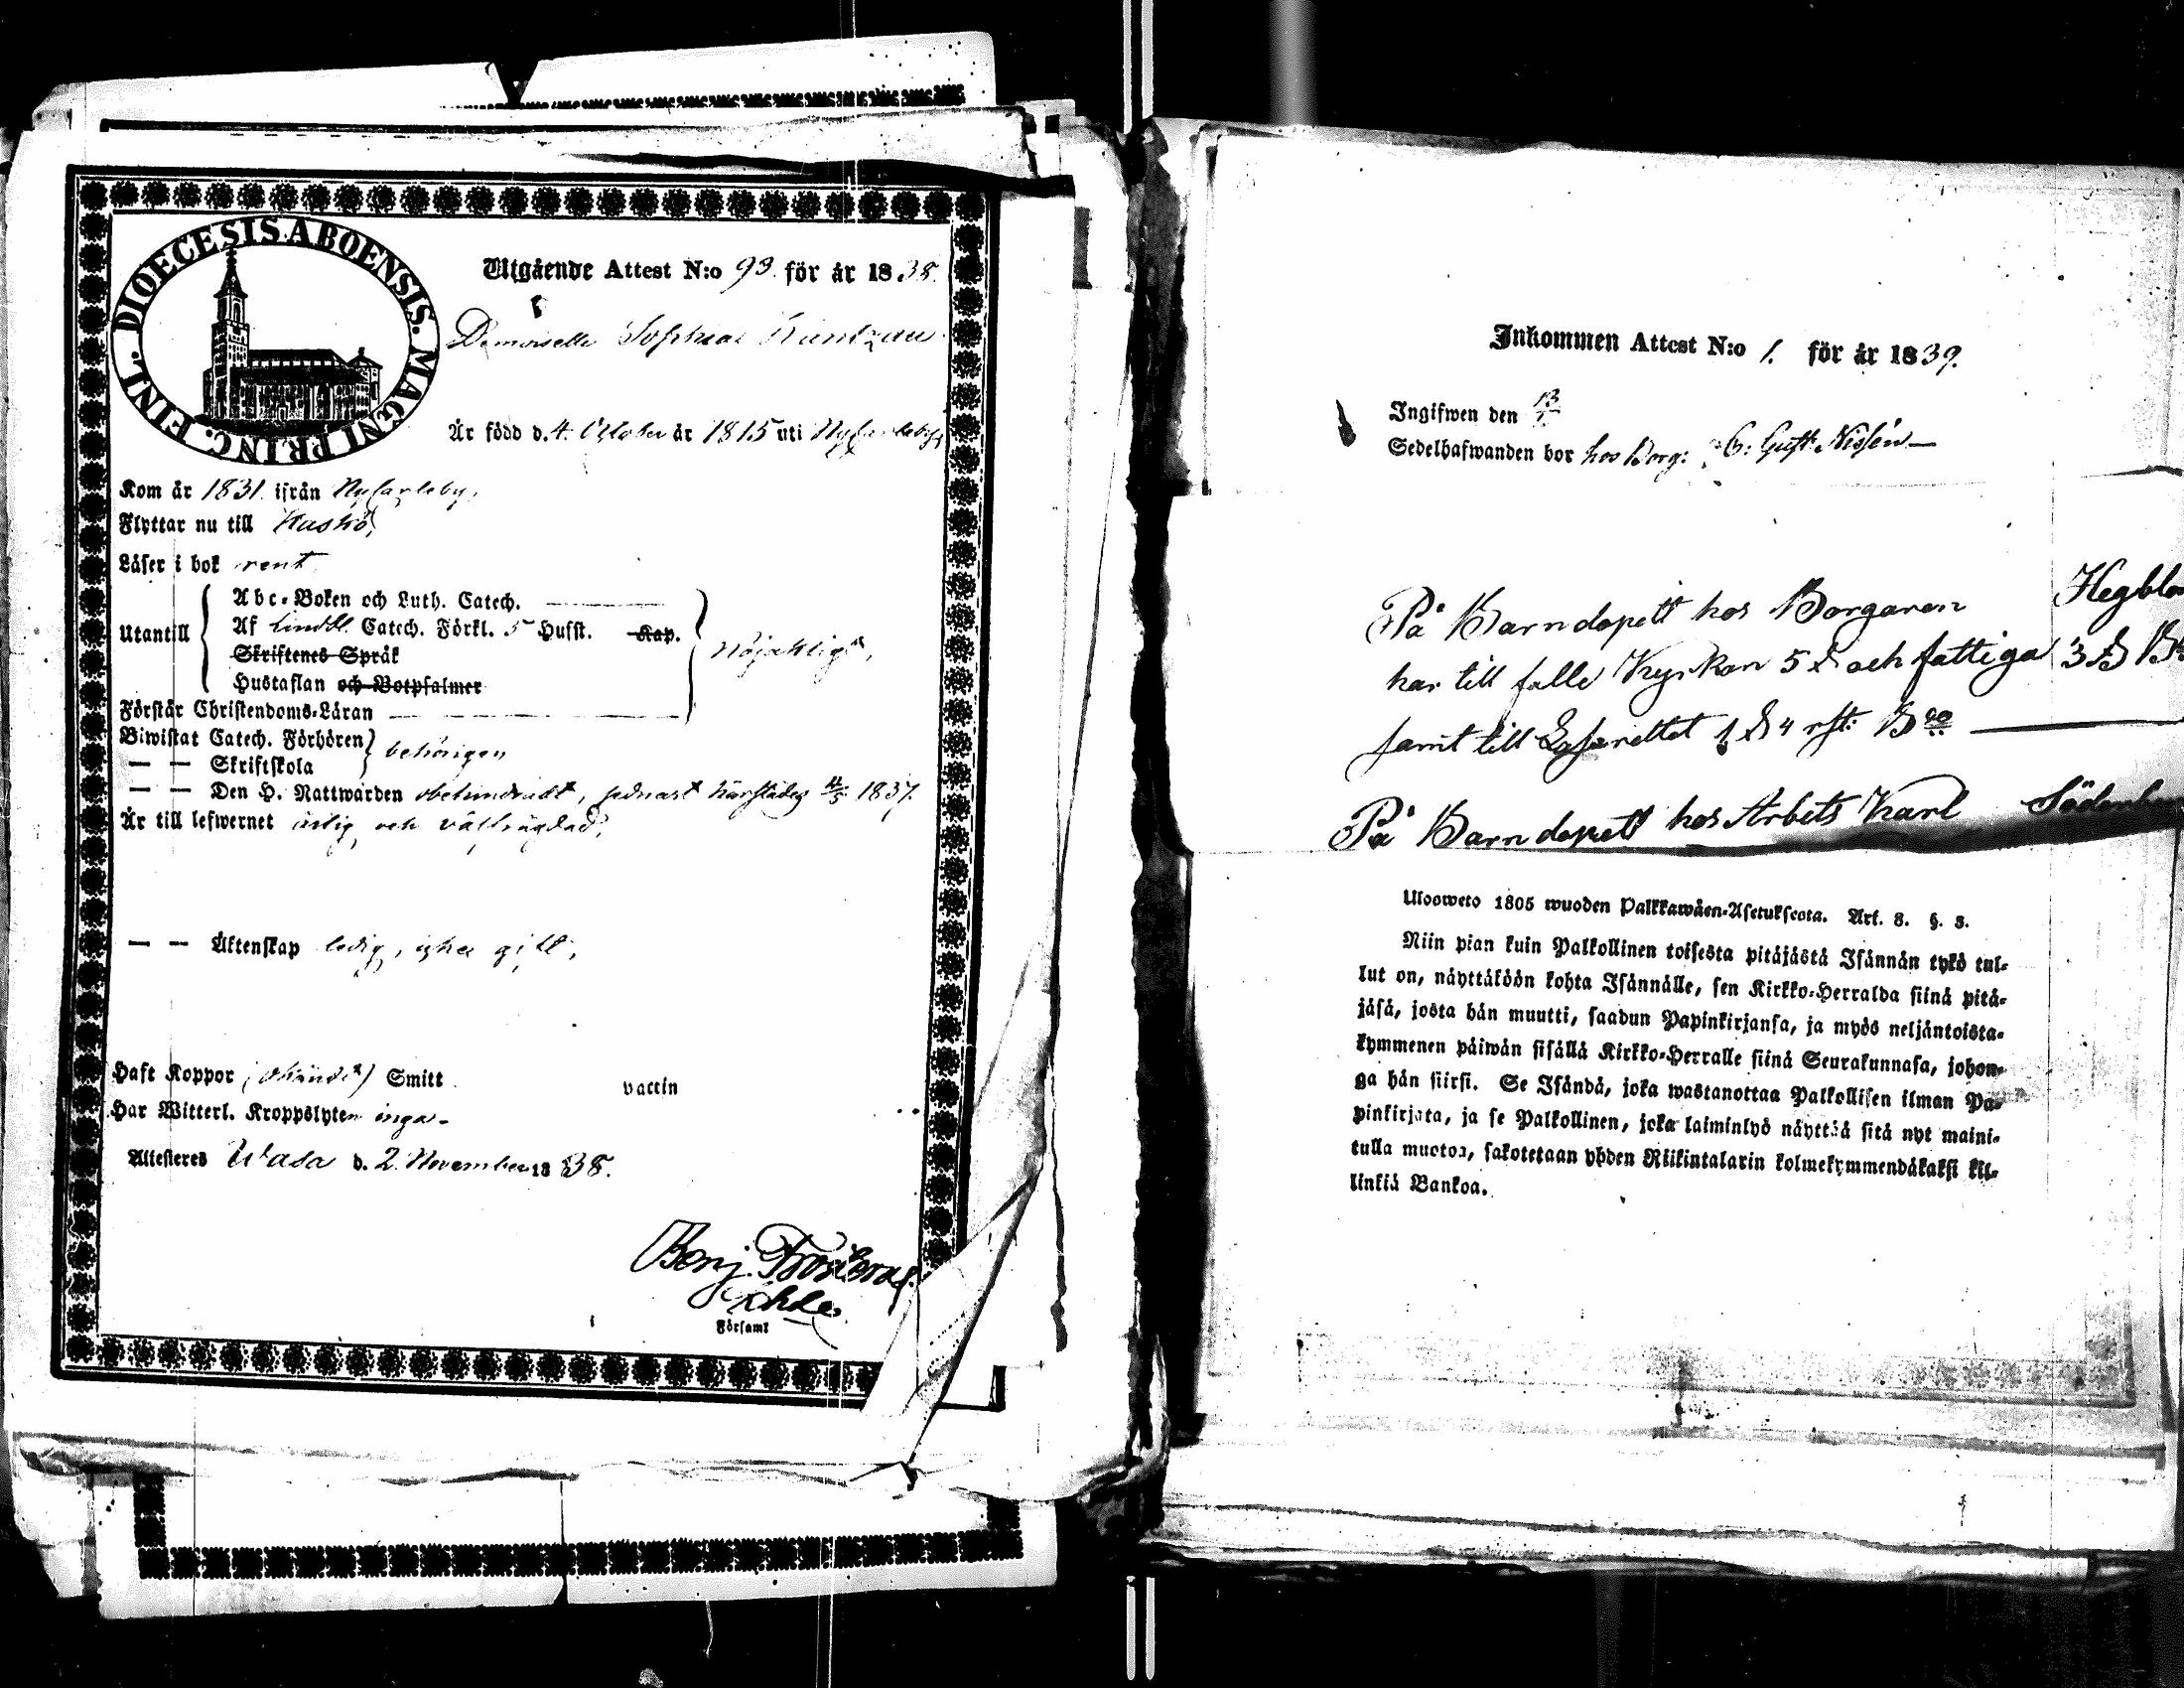 DIOECESIS ABOENSIS. MAGNI PRINC. FINL.
Utgående Attest N:o 93. för år 1838.
Demoiselle Sophia
Är född d. 4. October år 1815 uti Nycarleby,
Kom år 1831. ifrån Nycarleby,
Flyttar nu till Kaskö,
Läser i bok rent
Utantill
Abc-Boken och Luth. Catech.
Af Lindbl. Catech. Förkl. 5 Hufst. Kap.
Skriftenes Språk
Hustaflan och Botpsalmer
Förstår Christendoms-Läran
nöjaktigt,
Biwistat Catech. Förhören
— — Skriftskola
behörigen
— — Den H. Nattwarden obehindradt, sednast härstädes 1837.
Är till lefwernet ärlig och välfrägdad,
— — Äktenskap ledig, icke gift,
Haft Koppor (okändt) Smitt vaccin
Har Witterl. Kroppslyten inga.
Attesteres Wasa d. 2. November 1838.
Benj. Frosterus
Församl
Inkommen Attest N:o 1. för år 1839.
Ingifwen den 13/1
Sedelhafwanden bor hos Borg: Gust. Nissén
På Barndopett hos Borgaren
har till falle Kyrkan 5 och fattiga 3
samt till Lasarettet 1 4 rst:
På Barndopett hos Arbets Karl
Ulosweto 1805 wuoden Palkkawäen-Asetuksesta. Art. 8. §. 3.
Niin pian kuin Palkollinen toisesta pitäjästä Isännän tykö tul-
lut on, näyttäköön kohta Isännälle, sen Kirkko-Herralda siinä pitä-
jäsä, josta hän muutti, saadun Papinkirjansa, ja myös neljäntoista-
kymmenen päiwän sisällä Kirkko-Herralle siinä Seurakunnasa, johon-
ga hän siirsi. Se Isändä, joka wastanottaa Palkollisen ilman Pa-
pinkirjata, ja se Palkollinen, joka laiminlyö näyttää sitä nyt maini-
tulla muotoa, sakotetaan yhden Riikintalarin kolmekymmendäkaksi kil-
linkiä Bankoa.